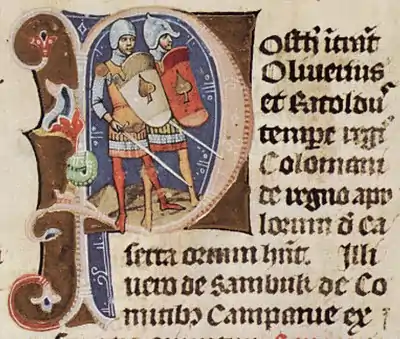 Posth itrat
Oliuerius
et Ratoldu
tempe regi
Colomani
de regno apu
lorum d ca
serta ortum hnt. Illi
uero de Sambuk de Co
mitibꝫ Campanie ex